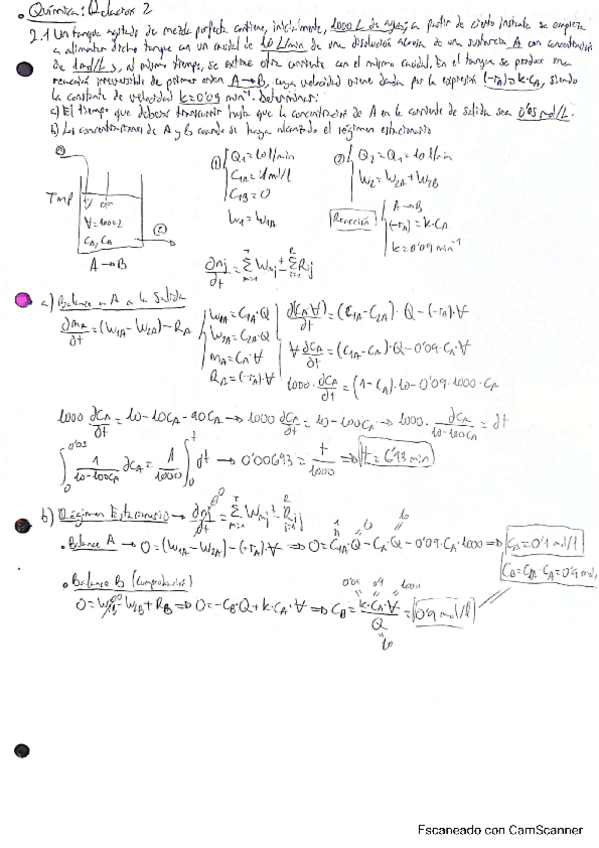 Química: Reactor 2
2.1 Un tanque agitado de mezcla perfecta contiene, inicialmente, 1000 L de agua; a partir de cierto instante se empieza
a alimentar dicho tanque con un caudal de 10 L/min de una disolución acuosa de una sustancia A con concentración
de 1 mol/L y, al mismo tiempo, se extrae otra corriente con el mismo caudal. En el tanque se produce una
reacción irreversible de primer orden A→B, cuya velocidad viene dada por la expresión (-rA)=k·CA, siendo
la constante de velocidad k=0'09 min⁻¹. Determinar:
a) El tiempo que deberá transcurrir hasta que la concentración de A en la corriente de salida sea 0'05 mol/L.
b) Las concentraciones de A y B cuando se haya alcanzado el régimen estacionario
TMP
V=1000L
CA, CB
A→B
① Q1=10 l/min
C1A=1 mol/l
C1B=0
W1=W1A
② Q2=Q1=10 l/min
W2=W2A+W2B
Reacción
A→B
(-rA)=k·CA
k=0'09 min⁻¹
∂nj/∂t=ΣWmj±ΣRij
a) Balance en A a la salida
∂nA/∂t=(W1A-W2A)-RA
W1A=C1A·Q
W2A=C2A·Q
nA=CA·V
RA=(-rA)·V
∂(CA·V)/∂t=(C1A-C2A)·Q-(-rA)·V
V ∂CA/∂t=(C1A-CA)·Q-0'09·CA·V
1000·∂CA/∂t=(1-CA)·10-0'09·1000·CA
1000 ∂CA/∂t=10-10CA-90CA→1000 ∂CA/∂t=10-100CA→1000·∂CA/(10-100CA)=∂t
∫ 1/(10-100CA) ∂CA=1/1000 ∫ ∂t → 0'00693=t/1000 ⇒ t=6'93 min
b) Régimen Estacionario → ∂nj/∂t=ΣWmj±ΣRij
• Balance A → 0=(W1A-W2A)-(-rA)·V ⇒ 0=C1A·Q-CA·Q-0'09·CA·1000 ⇒ CA=0'1 mol/l
CB=C1A-CA=0'9 mol/L
• Balance B (Comprobación)
0=W1B-W2B+RB ⇒ 0=-CB·Q+k·CA·V ⇒ CB=k·CA·V/Q=0'9 mol/l
Escaneado con CamScanner